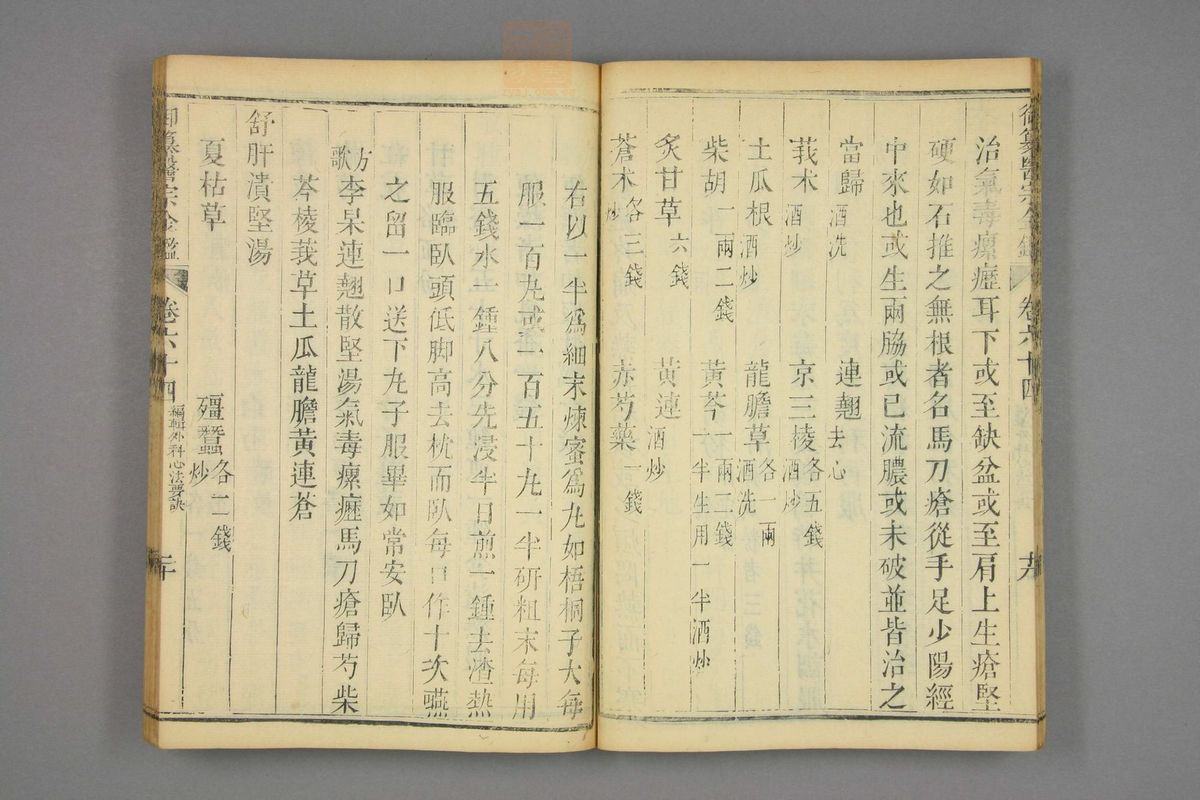 治氣毒瘰癧耳下或至缺盆或至肩上生瘡堅
硬如石推之無根者名馬刀瘡從手足少陽經
中來也或生兩脇或已流膿或未破並皆治之
當歸酒洗 連翹去心
莪术酒炒 京三棱各五錢酒炒
土瓜根酒炒 龍膽草各一兩酒洗
柴胡一兩二錢 黃芩一兩二錢一半生用一半酒炒
炙甘草六錢 黃連酒炒
蒼术各三錢炒 赤芍藥一錢
右以一半為細末煉蜜為丸如梧桐子大每
服一百丸或一百五十丸一半研粗末每用
五錢水一鍾八分先浸半日煎一鍾去渣熱
服臨臥頭低脚高去枕而臥每口作十次嚥
之留一口送下丸子服畢如常安臥
方歌李杲連翹散堅湯氣毒瘰癧馬刀瘡歸芍柴
芩棱莪草土瓜龍膽黃連蒼
舒肝潰堅湯
夏枯草 殭蠶各二錢炒
御纂醫宗金鑑 卷六十四 編輯外科心法要訣 二十